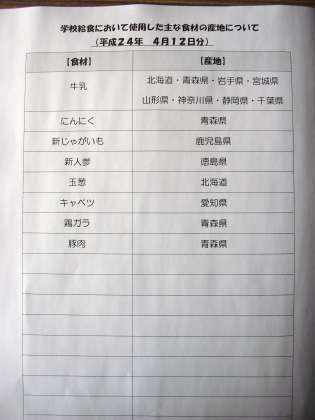 学校給食において使用した主な食材の産地について
（平成２４年　４月１２日分）
【食材】　【産地】
牛乳　北海道・青森県・岩手県・宮城県
山形県・神奈川県・静岡県・千葉県
にんにく　青森県
新じゃがいも　鹿児島県
新人参　徳島県
玉葱　北海道
キャベツ　愛知県
鶏ガラ　青森県
豚肉　青森県